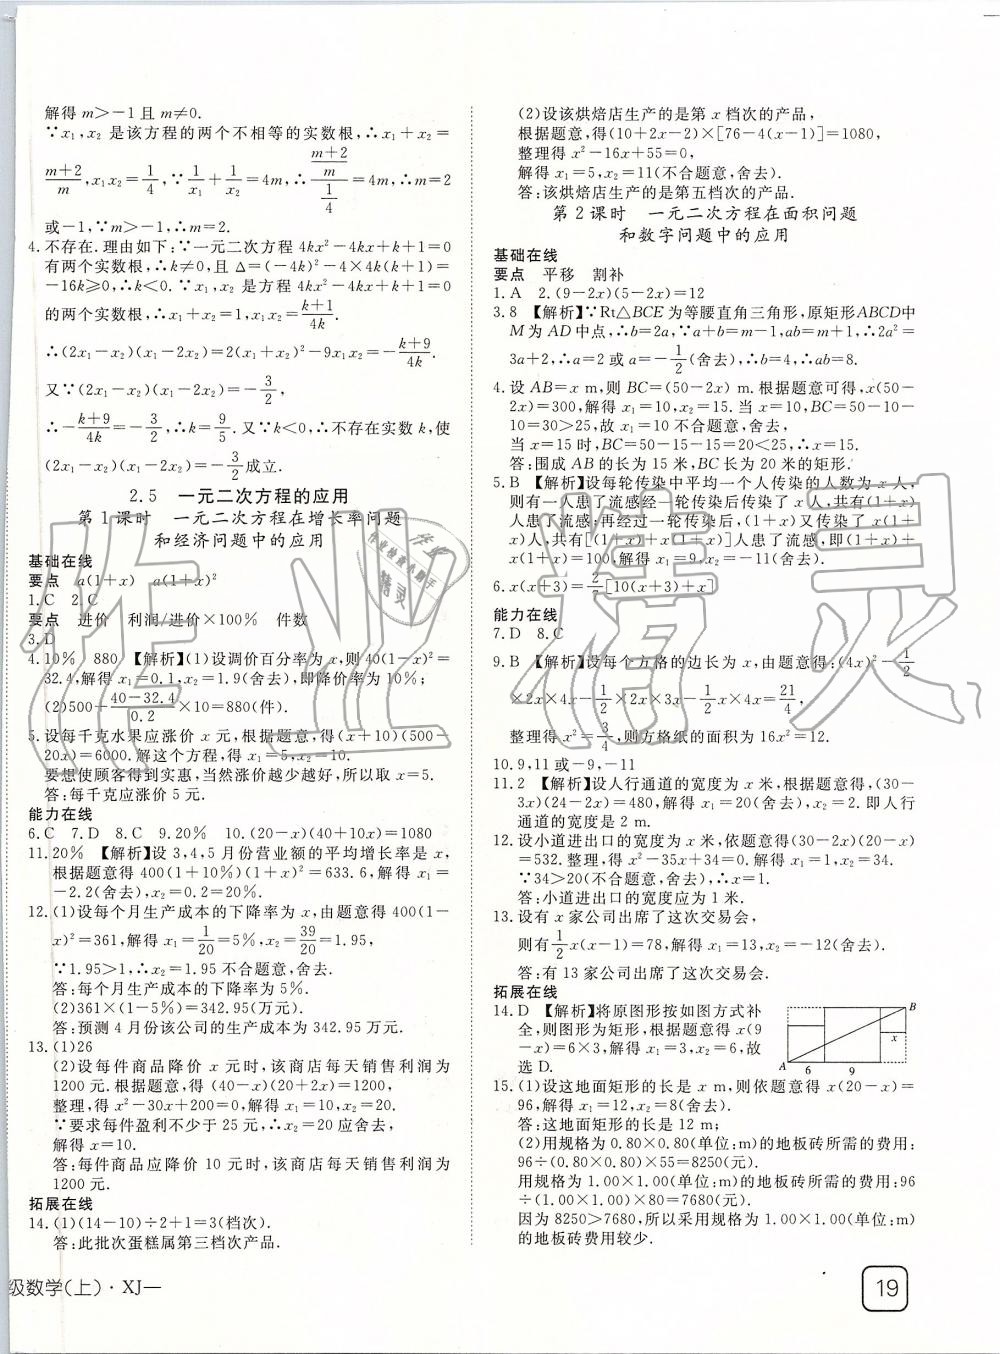 解得 m>-1 且 m≠0.
∵x₁,x₂ 是该方程的两个不相等的实数根,∴x₁+x₂=
(m+2)/m,x₁x₂=1/4,∵1/x₁+1/x₂=4m,∴((m+2)/m)/(1/4)=4m,∴m=2
或-1,∵m>-1,∴m=2.
4.不存在.理由如下:∵一元二次方程 4kx²-4kx+k+1=0
有两个实数根,∴k≠0,且 Δ=(-4k)²-4×4k(k+1)=
-16k≥0,∴k<0.∵x₁,x₂ 是方程 4kx²-4kx+k+1=0
的两个实数根,∴x₁+x₂=1,x₁x₂=(k+1)/4k.
∴(2x₁-x₂)(x₁-2x₂)=2(x₁+x₂)²-9x₁x₂=-(k+9)/4k.
又∵(2x₁-x₂)(x₁-2x₂)=-3/2,
∴-(k+9)/4k=-3/2,∴k=9/5.又∵k<0,∴不存在实数 k,使
(2x₁-x₂)(x₁-2x₂)=-3/2成立.
2.5 一元二次方程的应用
第 1 课时 一元二次方程在增长率问题
和经济问题中的应用
基础在线
要点 a(1+x) a(1+x)²
1.C 2.C
要点 进价 利润/进价×100% 件数
3.D
4.10% 880 【解析】(1)设调价百分率为 x,则 40(1-x)²=
32.4,解得 x₁=0.1,x₂=1.9(舍去),即降价率为 10%;
(2)500+(40-32.4)/0.2×10=880(件).
5.设每千克水果应涨价 x 元,根据题意,得(x+10)(500-
20x)=6000.解这个方程,得 x₁=5,x₂=10.
要想使顾客得到实惠,当然涨价越少越好,所以取 x=5.
答:每千克应涨价 5 元.
能力在线
6.C 7.D 8.C 9.20% 10.(20-x)(40+10x)=1080
11.20% 【解析】设 3,4,5 月份营业额的平均增长率是 x,
根据题意得 400(1+10%)(1+x)²=633.6,解得 x₁=
-2.2(舍去),x₂=0.2=20%.
12.(1)设每个月生产成本的下降率为 x,由题意得 400(1-
x)²=361,解得 x₁=1/20=5%,x₂=39/20=1.95,
∵1.95>1,∴x₂=1.95 不合题意,舍去.
答:每个月生产成本的下降率为 5%.
(2)361×(1-5%)=342.95(万元).
答:预测 4 月份该公司的生产成本为 342.95 万元.
13.(1)26
(2)设每件商品降价 x 元时,该商店每天销售利润为
1200 元.根据题意,得 (40-x)(20+2x)=1200,
整理,得 x²-30x+200=0,解得 x₁=10,x₂=20.
∵要求每件盈利不少于 25 元,∴x₂=20 应舍去,
解得 x=10.
答:每件商品应降价 10 元时,该商店每天销售利润为
1200 元.
拓展在线
14.(1)(14-10)÷2+1=3(档次).
答:此批次蛋糕属第三档次产品.
(2)设该烘焙店生产的是第 x 档次的产品,
根据题意,得(10+2x-2)×[76-4(x-1)]=1080,
整理得 x²-16x+55=0,
解得 x₁=5,x₂=11(不合题意,舍去).
答:该烘焙店生产的是第五档次的产品.
第 2 课时 一元二次方程在面积问题
和数字问题中的应用
基础在线
要点 平移 割补
1.A 2.(9-2x)(5-2x)=12
3.8 【解析】∵Rt△BCE 为等腰直角三角形,原矩形ABCD中
M 为 AD 中点,∴b=2a,∵a+b=m-1,ab=m+1,∴2a²=
3a+2,∴a=2 或a=-1/2(舍去),∴b=4,∴ab=8.
4.设 AB=x m,则 BC=(50-2x) m.根据题意可得,x(50-
2x)=300,解得 x₁=10,x₂=15.当 x=10,BC=50-10-
10=30>25,故不合题意,舍去,
当 x=15 时,BC=50-15-15=20<25,∴x=15.
答:围成 AB 的长为 15 米,BC 长为 20 米的矩形.
5.B 【解析】设每轮传染中平均一个人传染的人数为 x 人,
则有一人患了流感经一轮传染后传染了 x 人,共有(1+x)
人患了流感;再经过一轮传染后,(1+x)又传染了 x(1+
x)人,共有[(1+x)+x(1+x)]人患了流感,即(1+x)+
x(1+x)=100,解得x₁=9,x₂=-11(舍去).
6.x(x+3)=2/7[10(x+3)+x]
能力在线
7.D 8.C
9.B 【解析】设每个方格的边长为 x,由题意得:(4x)²-1/2
×2x×4x-1/2×2x×3x-1/2×x×4x=21/4,
整理得 x²=3/4,则方格纸的面积为 16x²=12.
10.9,11 或-9,-11
11.2 【解析】设人行通道的宽度为 x 米,根据题意得,(30-
3x)(24-2x)=480,解得 x₁=20(舍去),x₂=2.即人行
通道的宽度是 2 m.
12.设小道进出口的宽度为 x 米,依题意得(30-2x)(20-x)
=532.整理,得 x²-35x+34=0.解得 x₁=1,x₂=34.
∵34>20(不合题意,舍去),∴x=1.
答:小道进出口的宽度应为 1 米.
13.设有 x 家公司出席了这次交易会,
则有1/2x(x-1)=78,解得x₁=13,x₂=-12(舍去).
答:有 13 家公司出席了这次交易会.
拓展在线
14.D 【解析】将原图形按如图方式补
全,则图形为矩形,根据题意得 x(9
-x)=6×3,解得 x₁=3,x₂=6,故
选 D.
B
x
A 6 9
15.(1)设这地面矩形的长是 x m,则依题意得 x(20-x)=
96,解得x₁=12,x₂=8(舍去).
答:这地面矩形的长是 12 m;
(2)用规格为 0.80×0.80(单位:m)的地板砖所需的费用:
96÷(0.80×0.80)×55=8250(元).
用规格为 1.00×1.00(单位:m)的地板砖所需的费用:96
÷(1.00×1.00)×80=7680(元).
因为 8250>7680,所以采用规格为 1.00×1.00(单位:m)
的地板砖费用较少.
级数学(上)·XJ—
19
作业精灵